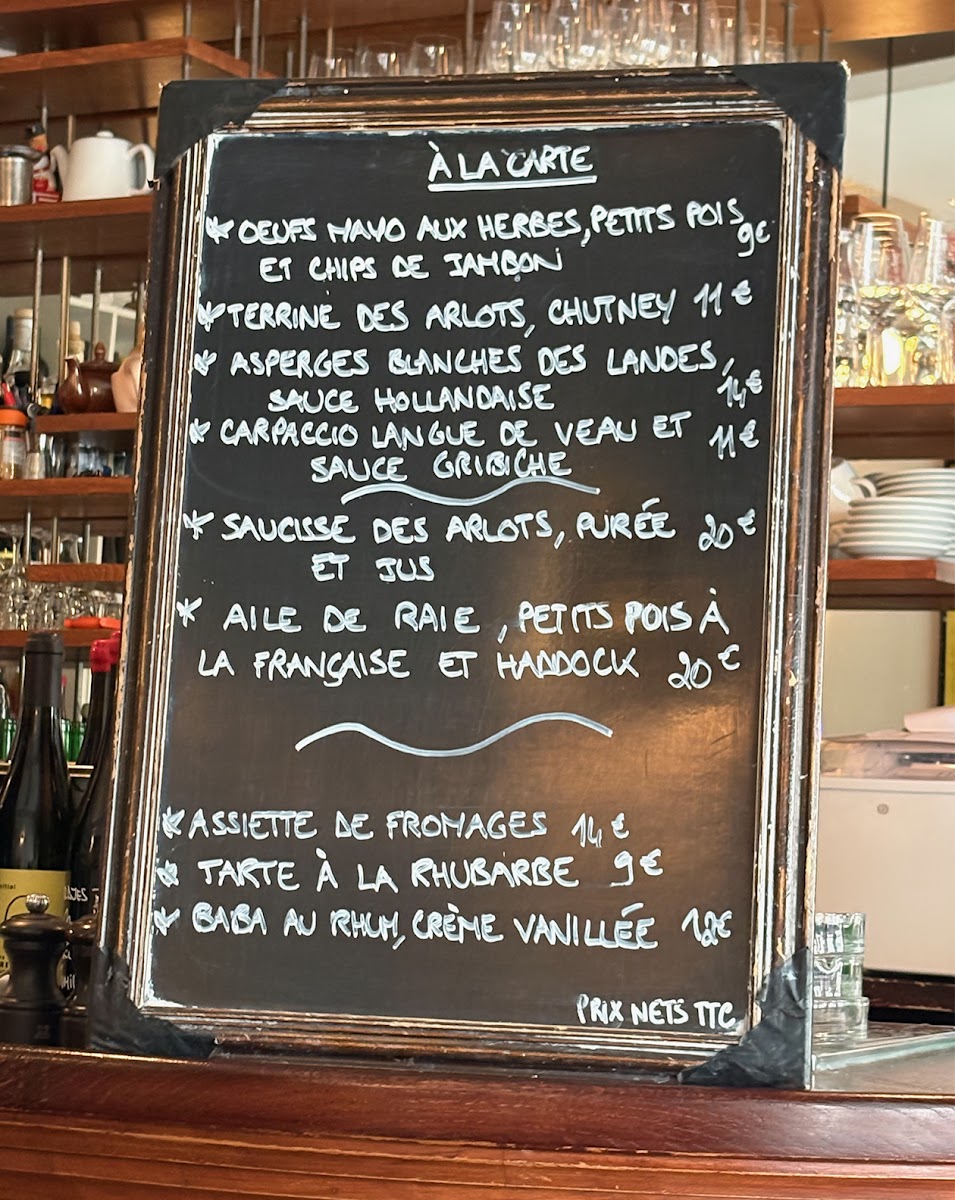 À LA CARTE
* OEUFS MAYO AUX HERBES, PETITS POIS 9€
ET CHIPS DE JAMBON
* TERRINE DES ARLOTS, CHUTNEY 11€
* ASPERGES BLANCHES DES LANDES,
SAUCE HOLLANDAISE 14€
* CARPACCIO LANGUE DE VEAU ET 11€
SAUCE GRIBICHE
* SAUCISSE DES ARLOTS, PURÉE 20€
ET JUS
* AILE DE RAIE, PETITS POIS À
LA FRANÇAISE ET HADDOCK 20€
* ASSIETTE DE FROMAGES 14€
* TARTE À LA RHUBARBE 9€
* BABA AU RHUM, CRÈME VANILLÉE 12€
PRIX NETS TTC